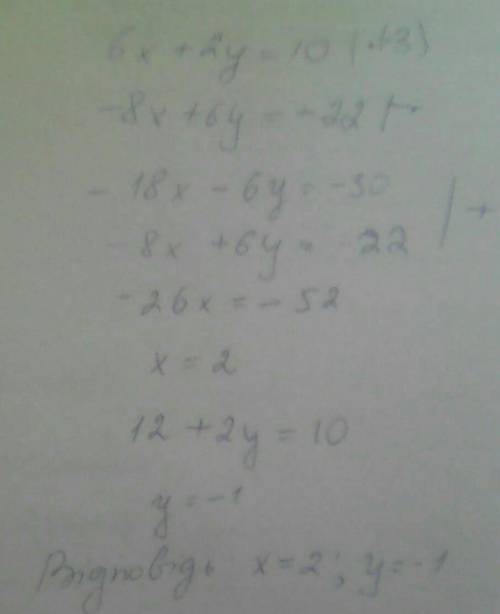 6x + 2y = 10 | · (-3)
-8x + 6y = -22
-18x - 6y = -30
-8x + 6y = -22 | +
-26x = -52
x = 2
12 + 2y = 10
y = -1
Відповідь x = 2; y = -1